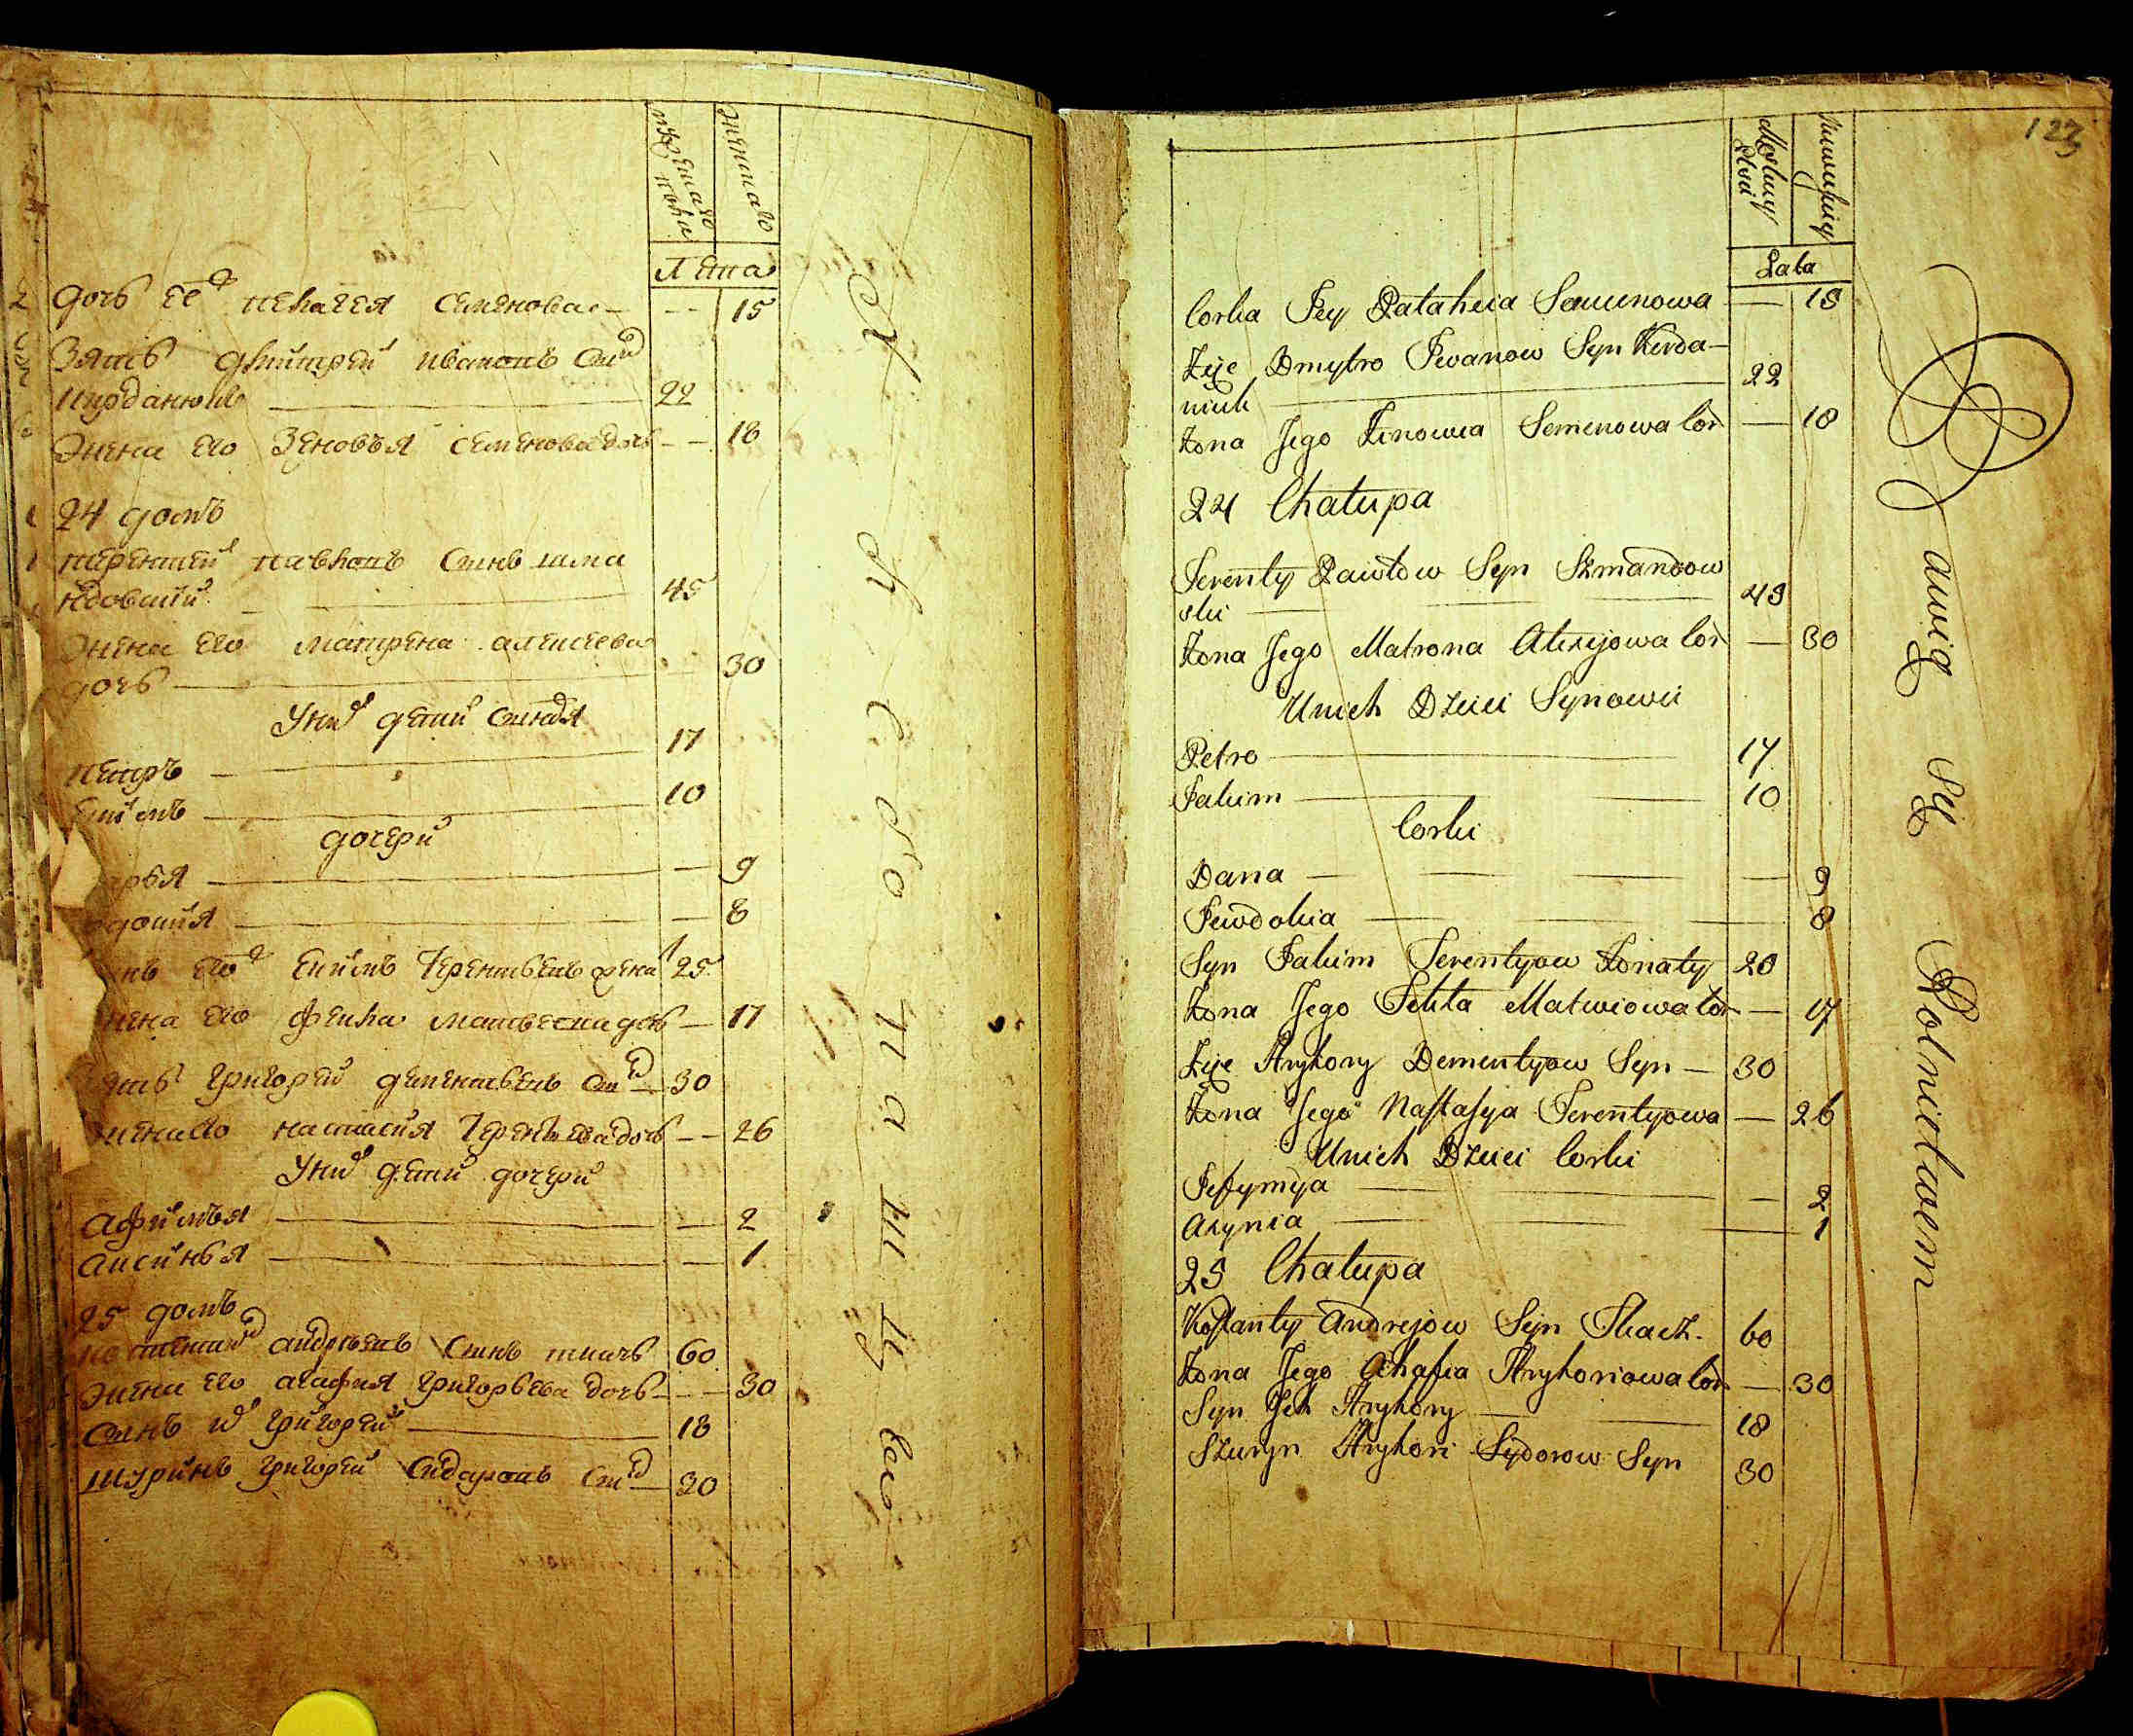 мужеска пола
женска
Лета
дочь ее пелагея семенова 15
Зять дмитрей иванов Сынъ
кирданюкъ 22
Жена его Зеновья семенова дочь 18
24 домъ
тиреншей павловъ Сынъ шма
ндовский 45
Жена его матрена алексеева
дочь 30
У них дети Синовя
петръ 17
Екимъ 10
дочери
арья 9
вдокия 8
нъ его Екимъ Терентьевъ 25
жена его фекла матвеева дочь 17
зять григорей дементьевъ Сынъ 30
Жена его настасия Терентьева дочь 26
У них дети дочери
афимья 2
аксинья 1
25 домъ
андреевъ Сынъ ткачь 60
Жена его агафия григорьева дочь 30
Сынъ их григорей 18
шуринъ григорей Сидаровъ Сынъ 30
123
Męskiey Płci
Lata
Corka Jey Pałaheia Semenowa — 15
Zięc Dmytro Jwanow Syn Kirda-
niuk 22
Zona Jego Zinowia Semenowa Cor — 18
24 Chałupa
Terenty Pawłow Syn Szmandow
ski 45
Zona Jego Matrona Alexijowa Cor — 30
Unich Dzieci Synowie
Petro 17
Jakim 10
Corki
Daria — 9
Jewdokia — 8
Syn Jakim Terentyow Zonaty 20
Zona Jego Tekla Matwiowa Cor — 17
Zięc Hryhory Dementyow Syn — 30
Zona Jego Nastasya Terentyowa — 26
Unich Dzieci Corki
Jefymija — 2
Axynia — 1
25 Chałupa
Kostanty Andrejow Syn Tkacz. 60
Zona Jego Ahafia Hryhoriowa Cor — 30
Syn Jch Hryhory 18
Szuryn Hryhori Sydorow Syn 30
Bawią Się Rolnictwem